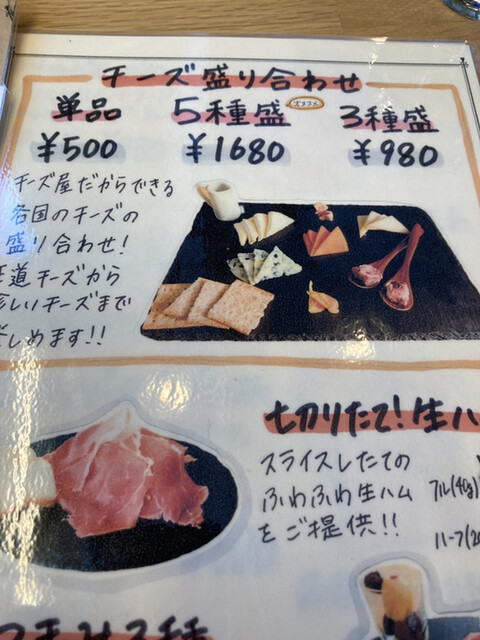 チーズ盛り合わせ
単品
¥500
5種盛
オススメ
¥1680
3種盛
¥980
チーズ屋だからできる
各国のチーズの
盛り合わせ!
王道チーズから
珍しいチーズまで
楽しめます!!
切りたて!生ハ
スライスしたての
ふわふわ生ハム
をご提供!!
フル(40g)
ハーフ(20